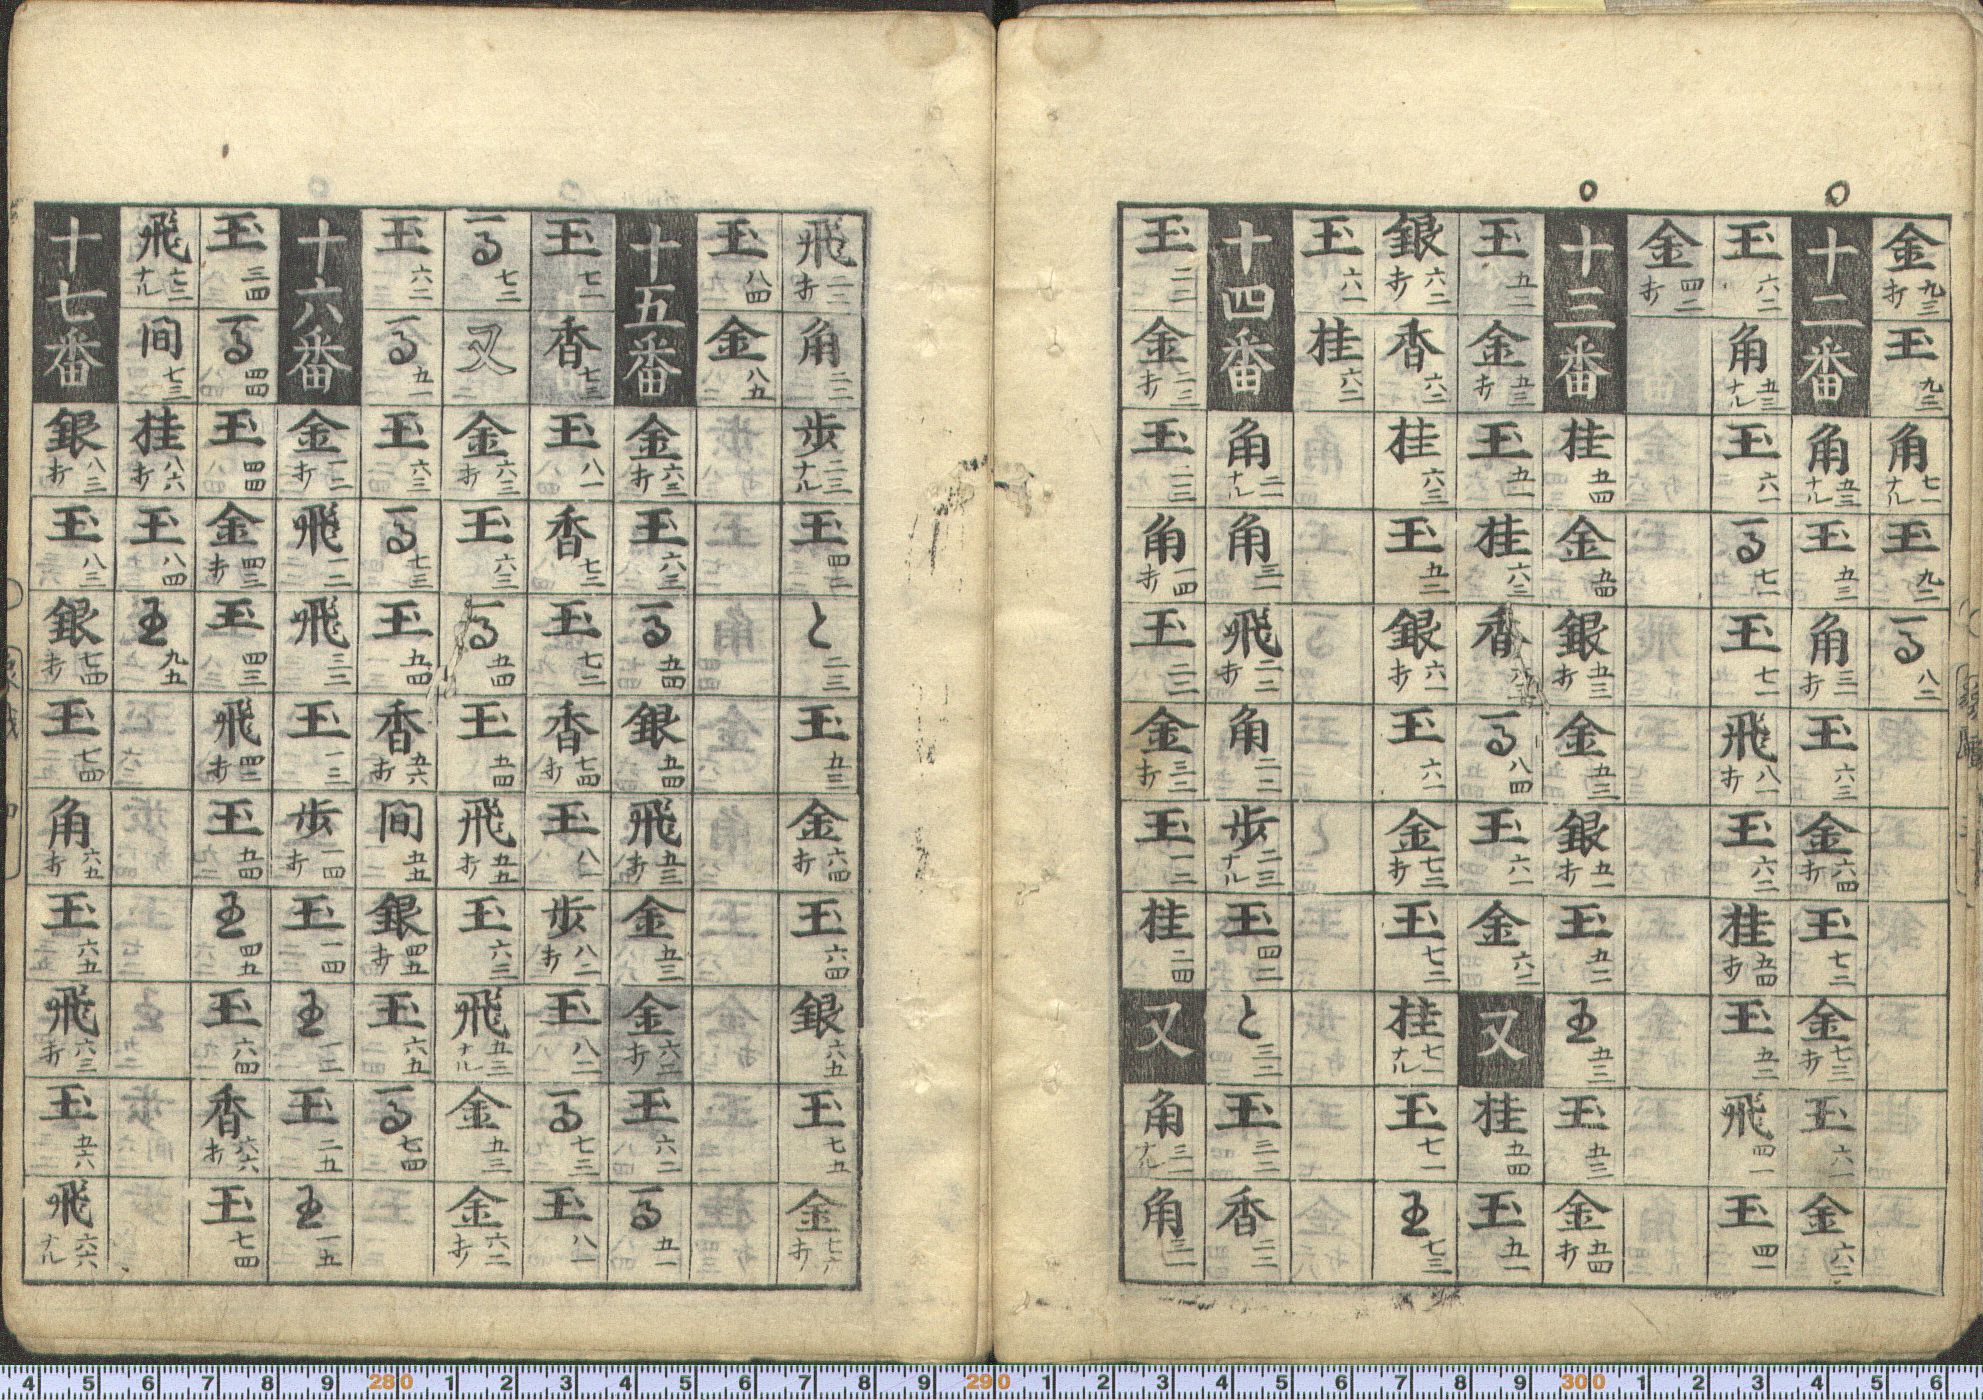 金九三打 玉九三 角七一ナル 玉九二 馬八二
十二番 角五三ナル 玉五三 角三一打 玉六三 金六四打 玉七二 金七三打 玉六一 金六二
玉六二 角五三ナル 玉六一 馬七一 玉七一 飛八一打 玉六二 桂五四打 玉五二 飛四一 玉四一
金四二打
十三番 桂五四 金五四 銀五三打 金五三 銀五一打 玉五二 王五三 玉五三 金五四打
玉五二 金五三打 玉五一 桂六三 香 馬八四 玉六一 金六二 又 桂五四 玉五一
銀六二打 香六二 桂六三 玉五二 銀六一打 玉六一 金七二打 玉七二 桂七一ナル 玉七一 王七三
玉六一 桂六二
十四番 角二一ナル 角三一 飛二二打 角二二 歩二三ナル 玉四二 と三三 玉三二 香二二
玉二二 金二三打 玉二三 角一四打 玉二二 金三二打 玉一二 桂二四 又 角三一ナル 角三一
飛二二打 角二二 歩二三ナル 玉四二 と三三 玉五三 金六四打 玉六四 銀六五 玉七五 金七六打
玉八四 金八五
十五番 金六三打 玉六三 馬五四 銀五四 飛五三打 金五三 金六二打 玉六二 馬五一
玉七一 香七三 玉八一 香七二 玉七二 香七四打 玉八一 歩八二打 玉八二 馬七三 玉八一
馬七二 又 金六三打 玉六三 馬五四 玉五四 飛五五打 玉六三 飛五三ナル 金五三 金六二打
玉六二 馬五一 玉六三 馬七三 玉五四 香五六打 間五五 銀四五打 玉六五 馬七四
十六番 金一二打 飛一二 飛三三 玉一三 歩一四打 玉一四 王一三 玉二五 王一五
玉三四 馬四四 玉四四 金四三打 玉四三 飛四二打 玉五四 王四五 玉六四 香六六打 玉七四
飛七二ナル 間七三 桂八六打 玉八四 王九五
十七番 銀八三打 玉八三 銀七四打 玉七四 角六五打 玉六五 飛六三打 玉五六 飛六六ナル